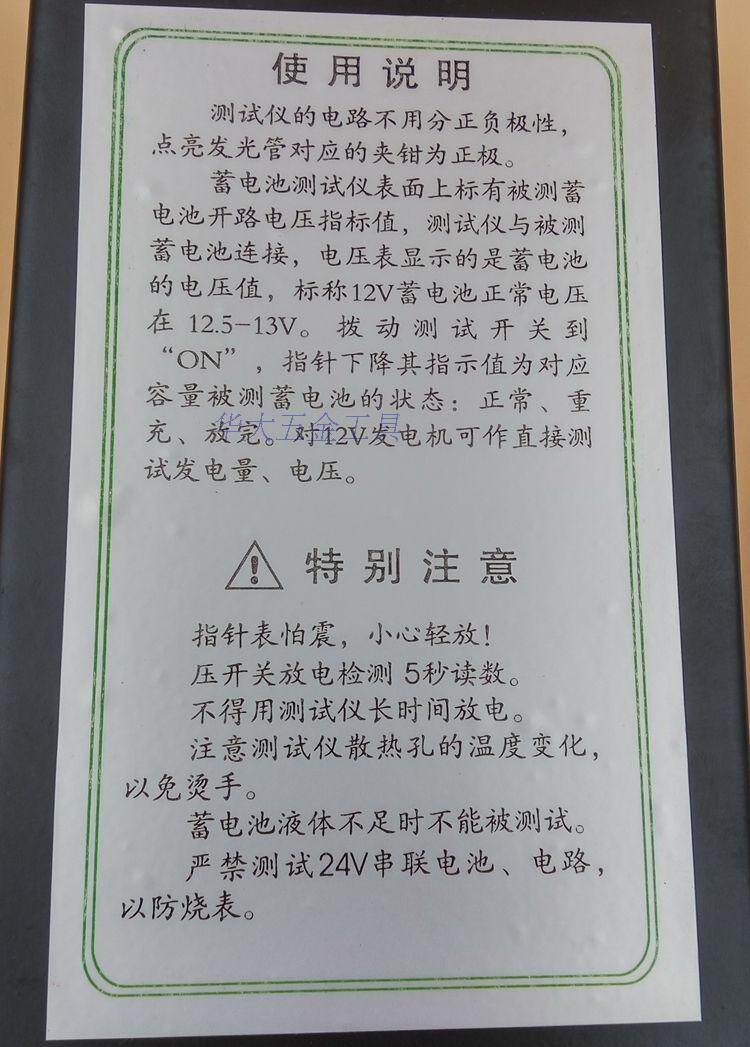 使用说明
测试仪的电路不用分正负极性，
点亮发光管对应的夹钳为正极。
蓄电池测试仪表面上标有被测蓄
电池开路电压指标值，测试仪与被测
蓄电池连接，电压表显示的是蓄电池
的电压值，标称12V蓄电池正常电压
在12.5-13V。拨动测试开关到
“ON”，指针下降其指示值为对应
容量被测蓄电池的状态：正常、重
充、放完。对12V发电机可作直接测
华大五金工具
试发电量、电压。
特别注意
指针表怕震，小心轻放！
压开关放电检测5秒读数。
不得用测试仪长时间放电。
注意测试仪散热孔的温度变化，
以免烫手。
蓄电池液体不足时不能被测试。
严禁测试24V串联电池、电路，
以防烧表。